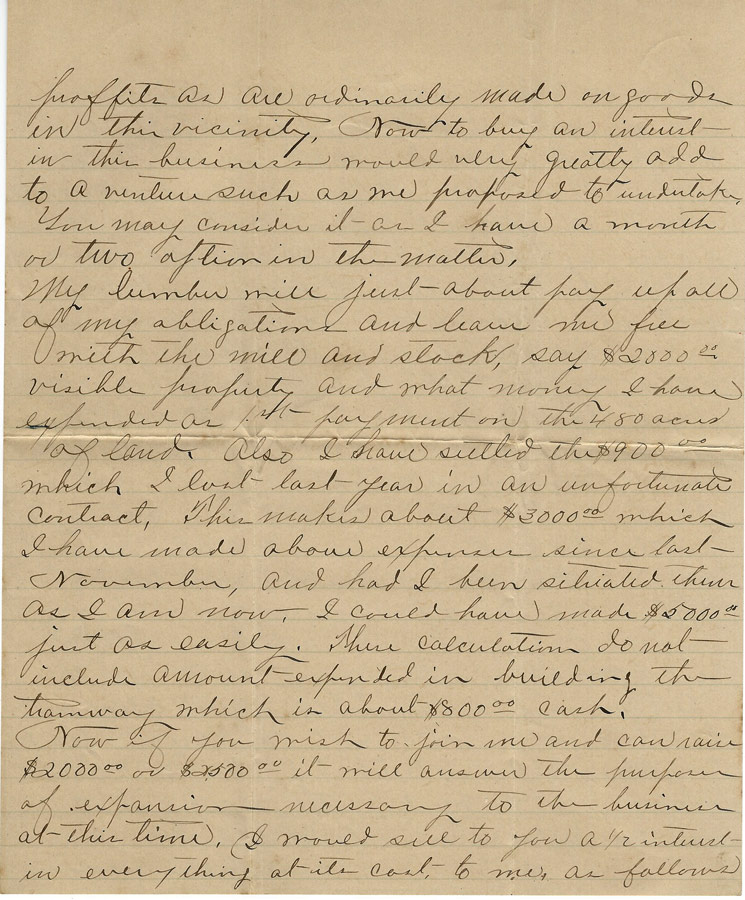 proffits as are ordinarily made on goods
in this vicinity. Now to buy an interest
in this business would very greatly add
to a venture such as we proposed to undertake.
You may consider it as I have a month
or two option in the matter.
My lumber will just about pay up all
of my obligations and leave me free
with the mill and stock, say $2000 00
visible property and what money I have
expended as 1st payment on the 480 acres
of land. Also I have settled the $900 00
which I lost last year in an unfortunate
contract, This makes about $3000 00 which
I have made above expenses since last
November, and had I been situated then
as I am now, I could have made $5000 00
just as easily. These calculations do not
include amount expended in building the
tramway which is about $800 00 cash.
Now if you wish to join me and can raise
$2000 00 or $2500 00 it will answer the purposes
of expansion necessary to the business
at this time. (I would sell to you a 1/2 interest
in everything at its cost, to me, as follows